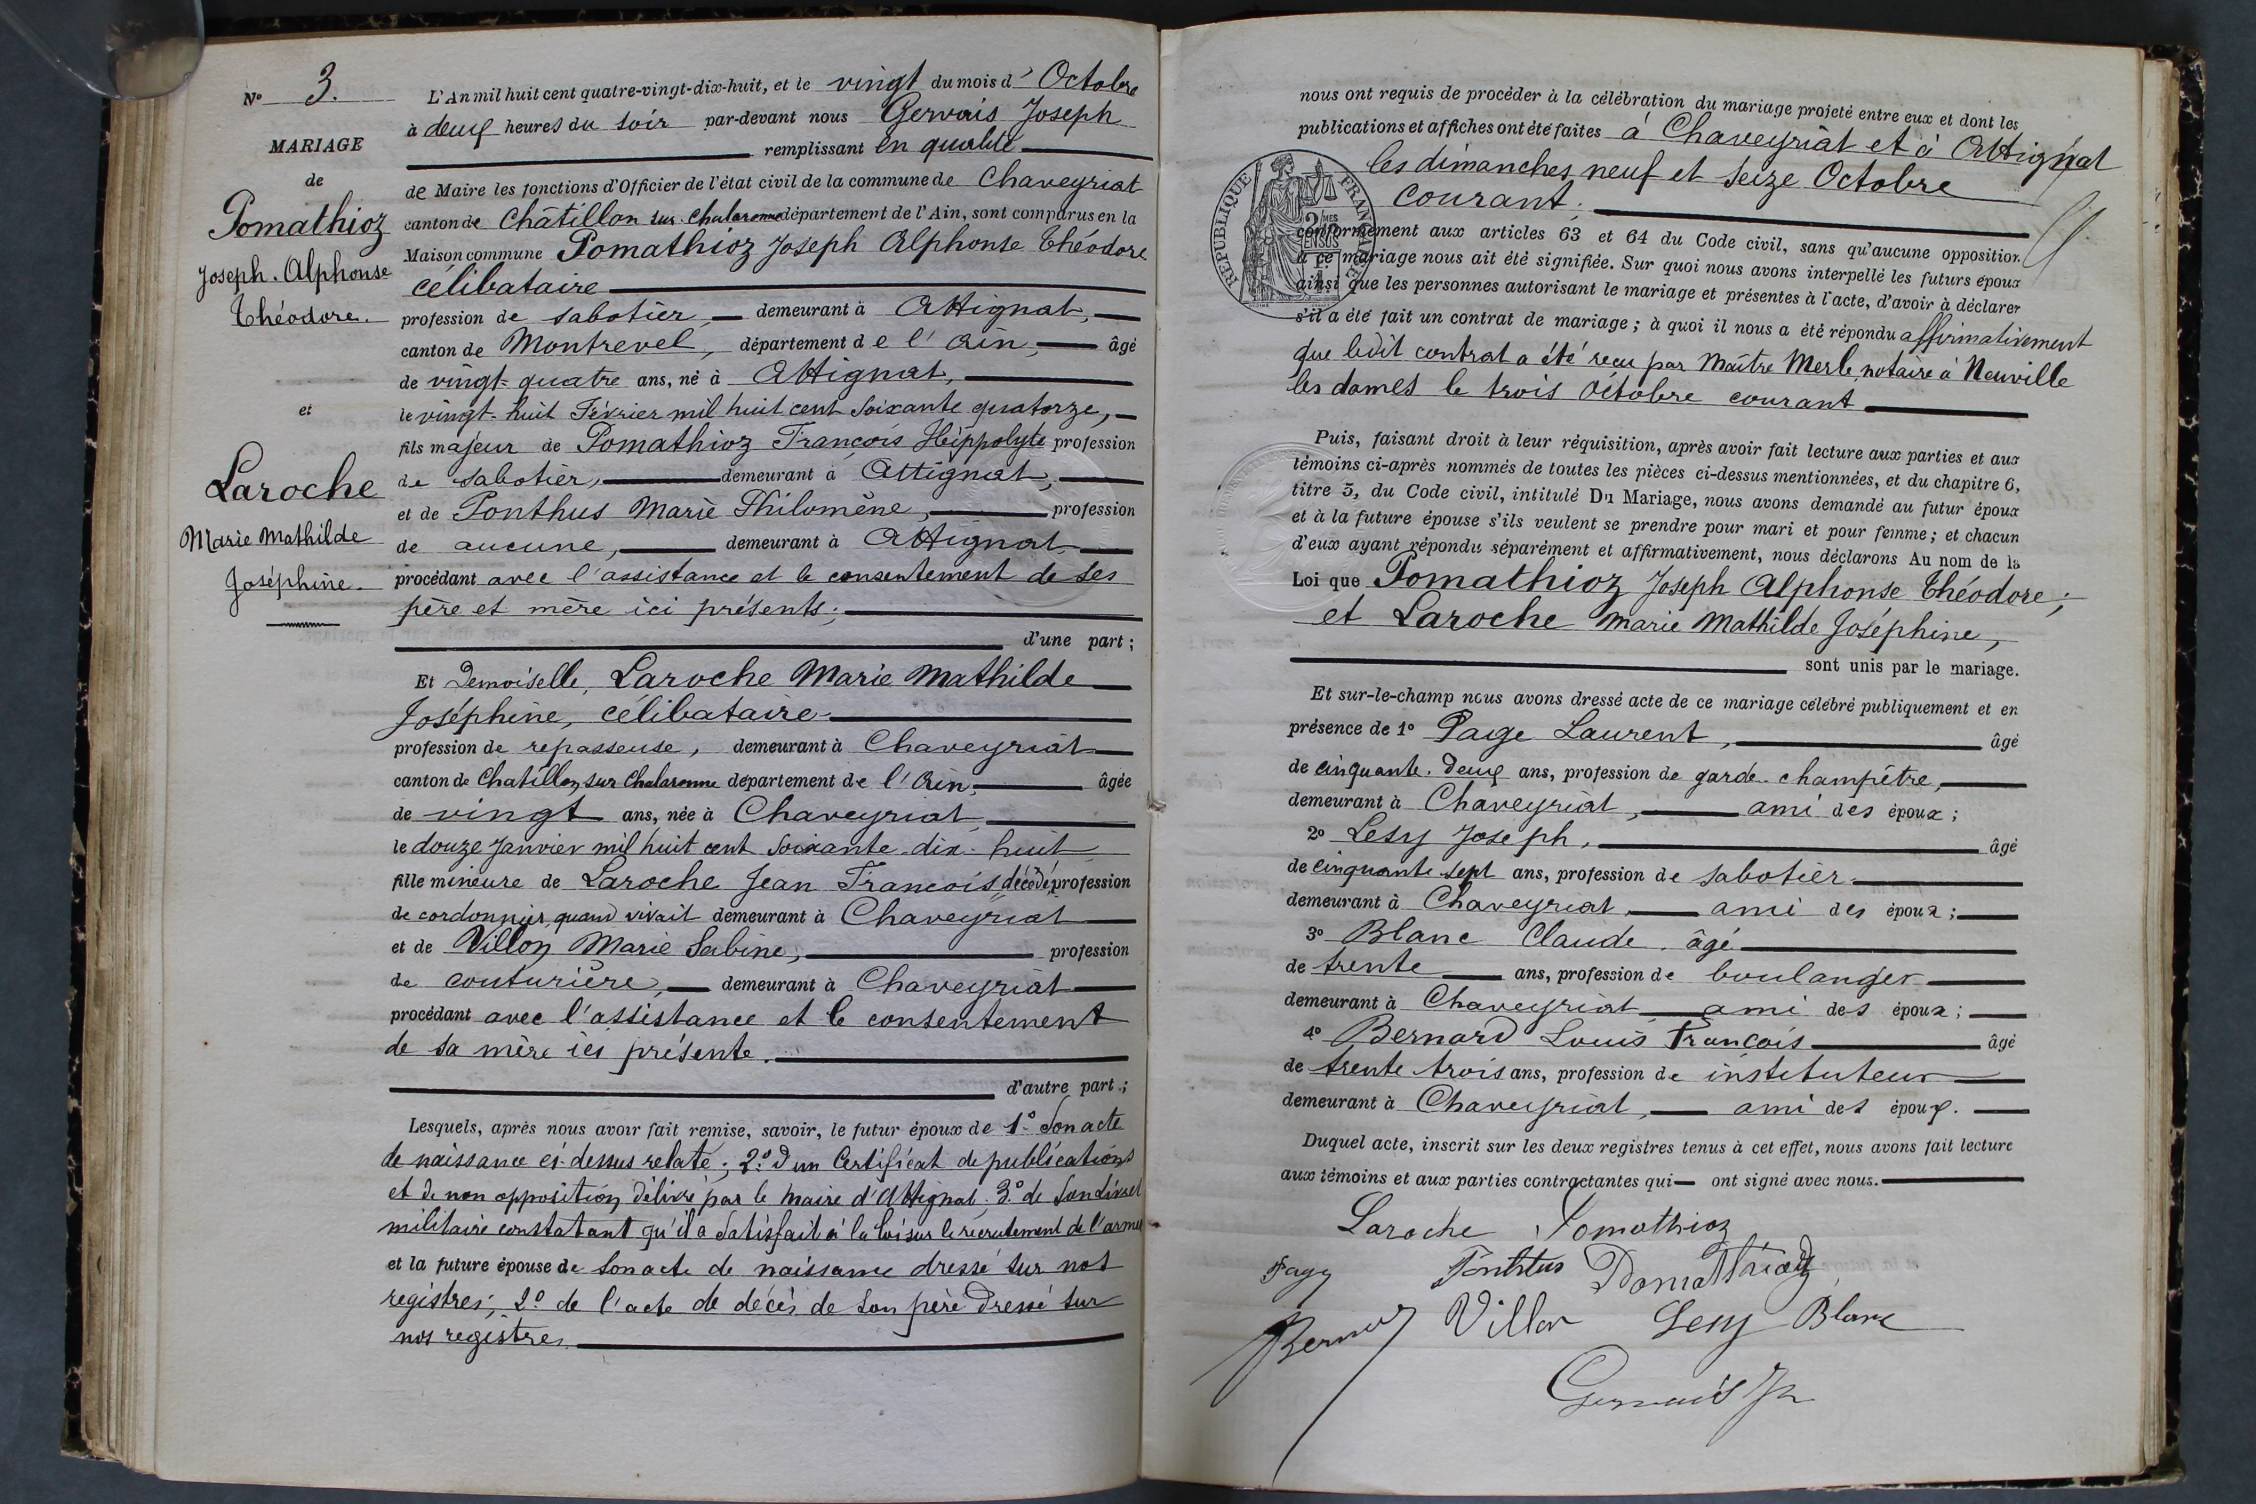 N° 3.
MARIAGE
de
Pomathioz
Joseph. Alphonse
Théodore.
et
Laroche
Marie Mathilde
Joséphine.
L'An mil huit cent quatre-vingt-dix-huit, et le vingt du mois d' Octobre
à deux heures du soir par-devant nous Gervais Joseph
remplissant en qualité
de Maire les fonctions d'Officier de l'état civil de la commune de Chaveyriat
canton de Châtillon sur Chalaronne département de l'Ain, sont comparus en la
Maison commune Pomathioz Joseph Alphonse Théodore
célibataire
profession de sabotier, demeurant à Attignat,
canton de Montrevel, département de l'Ain, âgé
de vingt-quatre ans, né à Attignat,
le vingt-huit Février mil huit cent soixante quatorze,
fils majeur de Pomathioz François Hippolyte profession
de sabotier, demeurant à Attignat,
et de Ponthus Marie Philomène, profession
de aucune, demeurant à Attignat
procédant avec l'assistance et le consentement de ses
père et mère ici présents;
d'une part;
Et Demoiselle, Laroche Marie Mathilde
Joséphine, célibataire
profession de repasseuse, demeurant à Chaveyriat
canton de Chatillon sur Chalaronne département de l'Ain, âgée
de vingt ans, née à Chaveyriat
le douze Janvier mil huit cent soixante-dix-huit
fille mineure de Laroche Jean François, décédé, profession
de cordonnier quand vivait demeurant à Chaveyriat
et de Villon Marie Sabine, profession
de couturière, demeurant à Chaveyriat
procédant avec l'assistance et le consentement
de sa mère ici présente.
d'autre part;
Lesquels, après nous avoir fait remise, savoir, le futur époux de 1° Son acte
de naissance ci-dessus relaté; 2° d'un Certificat de publications
et de non opposition délivré par le maire d'Attignat. 3° de Son Livret
militaire constatant qu'il a satisfait à la loi sur le recrutement de l'armée
et la future épouse de Son acte de naissance dressé sur nos
registres; 2° de l'acte de décès de son père dressé sur
nos registres.
nous ont requis de procéder à la célébration du mariage projeté entre eux et dont les
publications et affiches ont été faites à Chaveyriat et à Attignat
les dimanches neuf et seize Octobre
courant;
REPUBLIQUE FRANÇAISE
2 MES EN SUS
conformément aux articles 63 et 64 du Code civil, sans qu'aucune opposition
à ce mariage nous ait été signifiée. Sur quoi nous avons interpellé les futurs époux
ainsi que les personnes autorisant le mariage et présentes à l'acte, d'avoir à déclarer
s'il a été fait un contrat de mariage; à quoi il nous a été répondu affirmativement
que ledit contrat a été reçu par Maître Merle, notaire à Neuville
les dames le trois Octobre courant
Puis, faisant droit à leur réquisition, après avoir fait lecture aux parties et aux
témoins ci-après nommés de toutes les pièces ci-dessus mentionnées, et du chapitre 6,
titre 5, du Code civil, intitulé Du Mariage, nous avons demandé au futur époux
et à la future épouse s'ils veulent se prendre pour mari et pour femme; et chacun
d'eux ayant répondu séparément et affirmativement, nous déclarons Au nom de la
Loi que Pomathioz Joseph Alphonse Théodore;
et Laroche Marie Mathilde Joséphine,
sont unis par le mariage.
Et sur-le-champ nous avons dressé acte de ce mariage célébré publiquement et en
présence de 1° Page Laurent, âgé
de cinquante-deux ans, profession de garde-champêtre,
demeurant à Chaveyriat, ami des époux;
2° Lesy Joseph, âgé
de cinquante sept ans, profession de sabotier
demeurant à Chaveyriat, ami des époux;
3° Blanc Claude. âgé
de trente ans, profession de boulanger
demeurant à Chaveyriat ami des époux;
4° Bernard Louis François âgé
de trente trois ans, profession de instituteur
demeurant à Chaveyriat, ami des époux.
Duquel acte, inscrit sur les deux registres tenus à cet effet, nous avons fait lecture
aux témoins et aux parties contractantes qui ont signé avec nous.
Laroche Pomathioz
Ponthus Pomathioz
Villon Lesy Blanc
Gervais